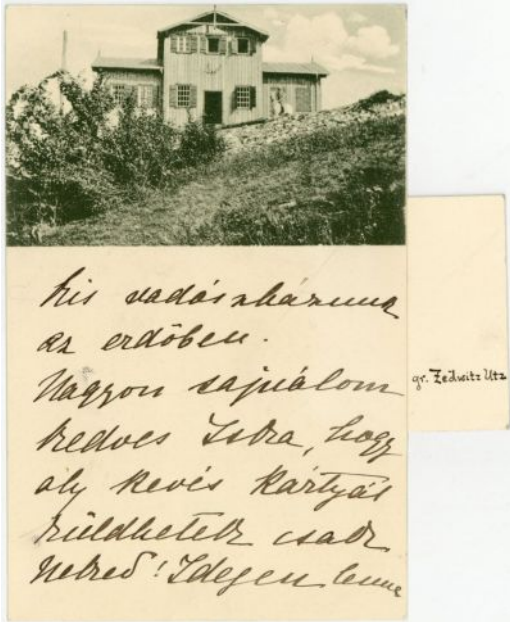 Kis vadászházunk
az erdőben.
Nagyon sajnálom
kedves Iska, hogy
oly kevés kártyát
küldhetek csak
Neked! Idegen lenne
gr. Zedwitz Utz